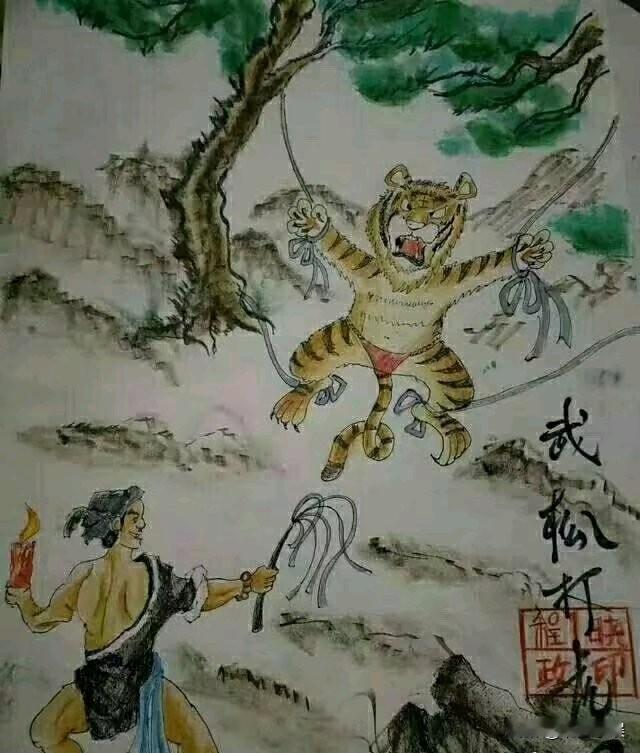 武松打虎
程
政印